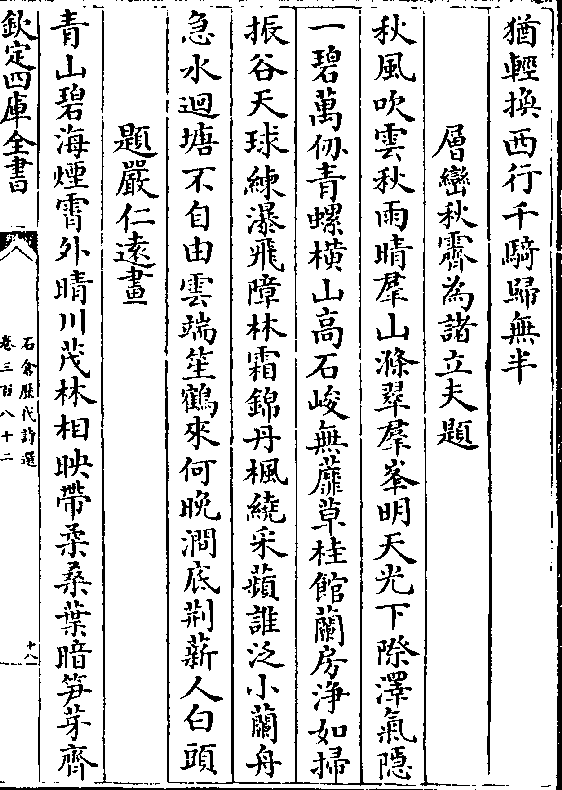 猶輕換西行千騎歸無半
層巒秋霽為諸立夫題
秋風吹雲秋雨晴羣山滌翠羣峯明天光下際澤氣隱
一碧萬仞青螺橫山高石峻無蘼草桂館蘭房浄如掃
振谷天球練瀑飛障林霜錦丹楓繞采蘋誰泛小蘭舟
急水迴塘不自由雲端笙鶴來何晚澗底荆薪人白頭
題嚴仁遠畫
青山碧海煙霄外晴川茂林相映帶柔桑葉暗笋芽齊
欽定四庫全書
石倉歷代詩選
卷三百八十二
十八